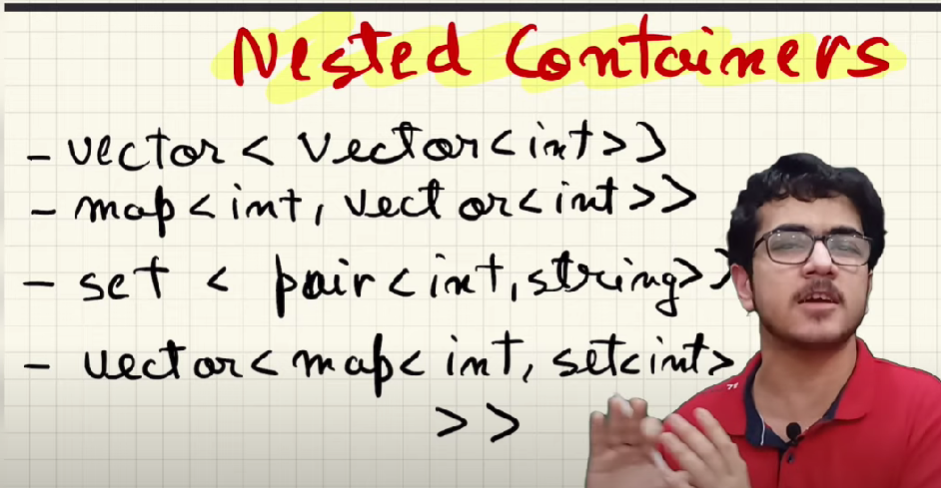 Nested Containers
- vector < vector<int>>
- map<int, vector<int>>
- set < pair<int,string>>
- vector<map<int, set<int>
>>